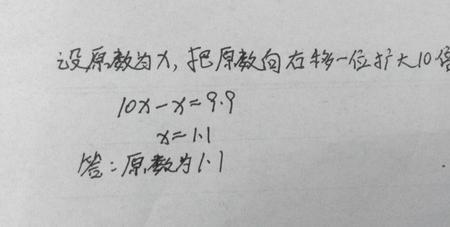 设原数为x，把原数向右移一位扩大10倍
10x-x=9.9
x=1.1
答：原数为1.1